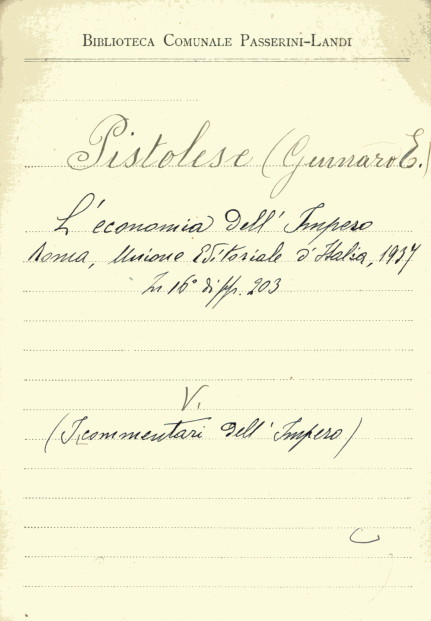 BIBLIOTECA COMUNALE PASSERINI-LANDI
Pistolese (Gennaro E.)
L'économia dell'Impero
Roma, Unione Editoriale d'Italia, 1937
In 16° di pp. 203
V.
(I commentari dell'Impero)